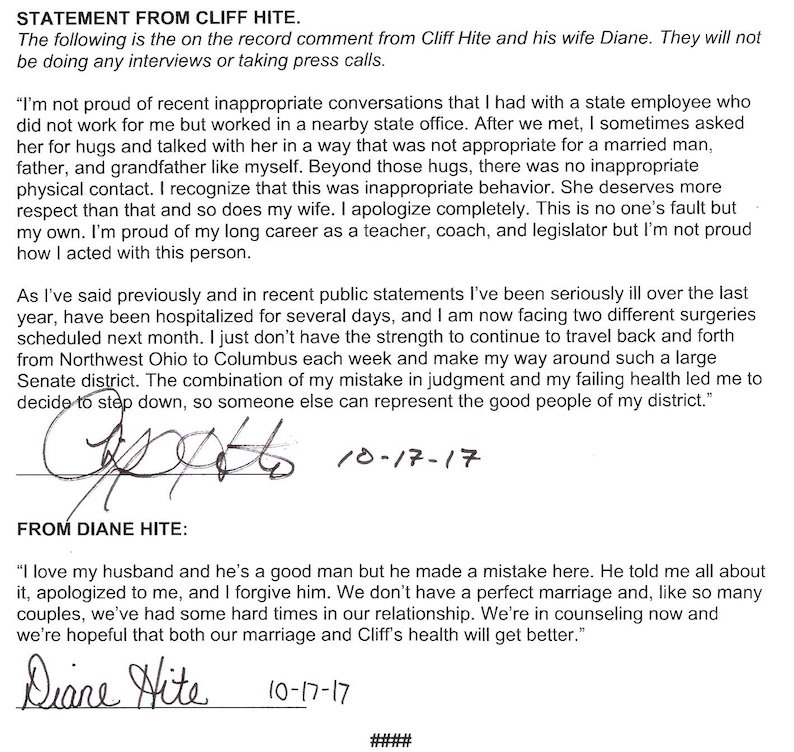 STATEMENT FROM CLIFF HITE.
The following is the on the record comment from Cliff Hite and his wife Diane. They will not
be doing any interviews or taking press calls.
“I’m not proud of recent inappropriate conversations that I had with a state employee who
did not work for me but worked in a nearby state office. After we met, I sometimes asked
her for hugs and talked with her in a way that was not appropriate for a married man,
father, and grandfather like myself. Beyond those hugs, there was no inappropriate
physical contact. I recognize that this was inappropriate behavior. She deserves more
respect than that and so does my wife. I apologize completely. This is no one’s fault but
my own. I’m proud of my long career as a teacher, coach, and legislator but I’m not proud
how I acted with this person.
As I’ve said previously and in recent public statements I’ve been seriously ill over the last
year, have been hospitalized for several days, and I am now facing two different surgeries
scheduled next month. I just don’t have the strength to continue to travel back and forth
from Northwest Ohio to Columbus each week and make my way around such a large
Senate district. The combination of my mistake in judgment and my failing health led me to
decide to step down, so someone else can represent the good people of my district.”
Cliff Hite 10-17-17
FROM DIANE HITE:
“I love my husband and he’s a good man but he made a mistake here. He told me all about
it, apologized to me, and I forgive him. We don’t have a perfect marriage and, like so many
couples, we’ve had some hard times in our relationship. We’re in counseling now and
we’re hopeful that both our marriage and Cliff’s health will get better.”
Diane Hite 10-17-17
####